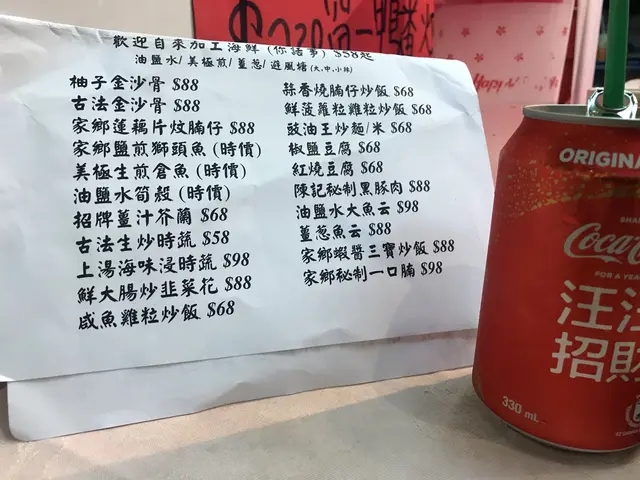 歡迎自來加工海鮮 (你話事) $58起
油鹽水/ 美極煎/ 薑葱/ 避風塘 (大,中,小辣)
柚子金沙骨 $88
古法金沙骨 $88
家鄉蓮藕片炆腩仔 $88
家鄉鹽煎獅頭魚 (時價)
美極生煎倉魚 (時價)
油鹽水筍殼 (時價)
招牌薑汁芥蘭 $68
古法生炒時蔬 $58
上湯海味浸時蔬 $98
鮮大腸炒韭菜花 $88
咸魚雞粒炒飯 $68
蒜香燒腩仔炒飯 $68
鮮菠蘿粒雞粒炒飯 $68
豉油王炒麵/米 $68
椒鹽豆腐 $68
紅燒豆腐 $68
陳記秘制黑豚肉 $88
油鹽水大魚云 $98
薑葱魚云 $88
家鄉蝦醬三寶炒飯 $88
家鄉秘制一口腩 $98
Happy
ORIGINA
SHAR
Coca
FOR A YEA
汪
招財
330 mL